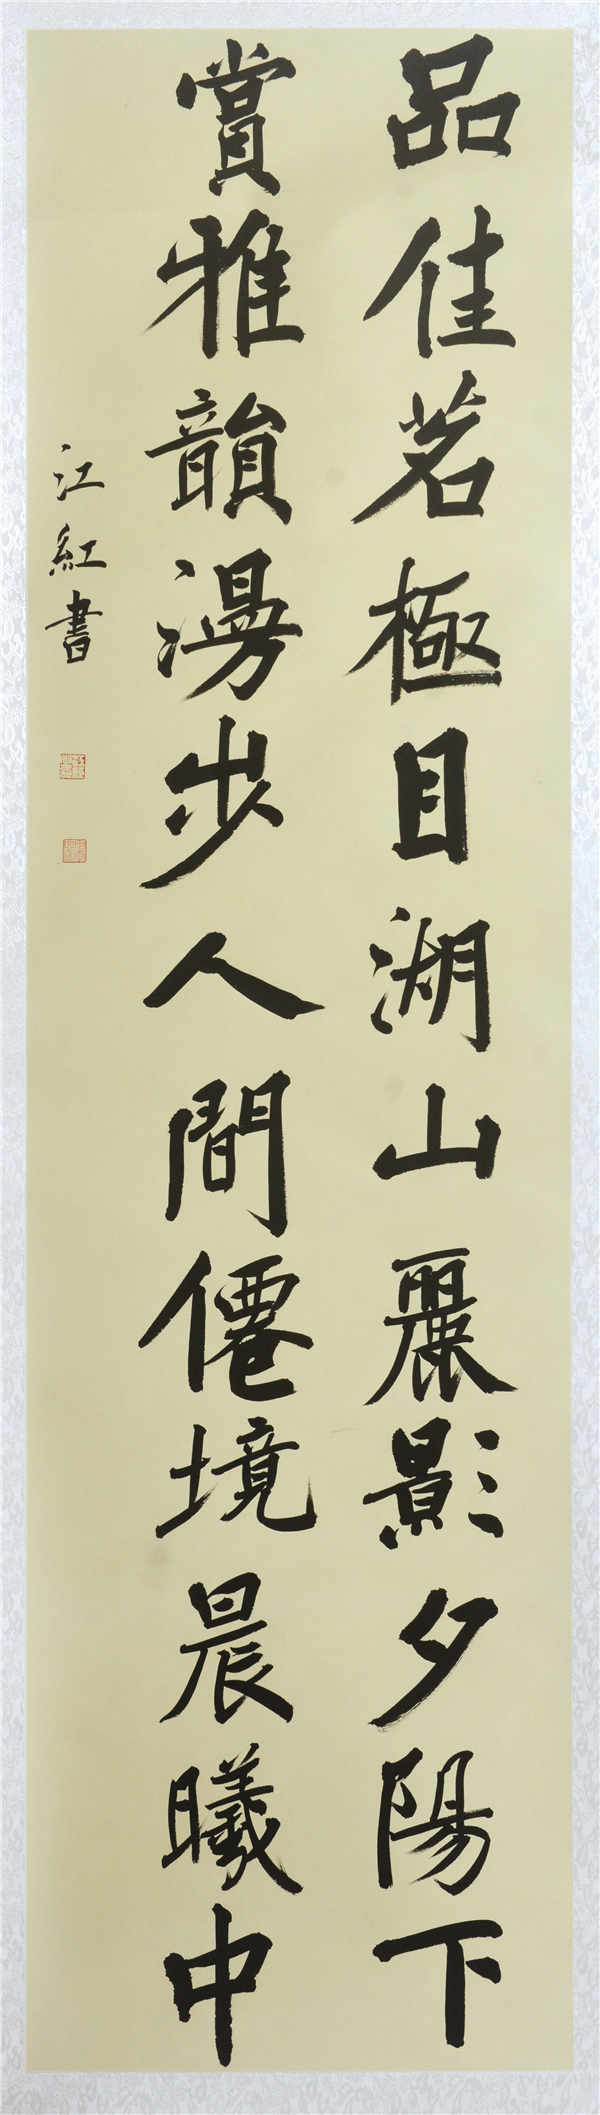 品佳茗極目湖山麗影夕陽下
賞雅韻漫步人間僊境晨曦中
江紅書